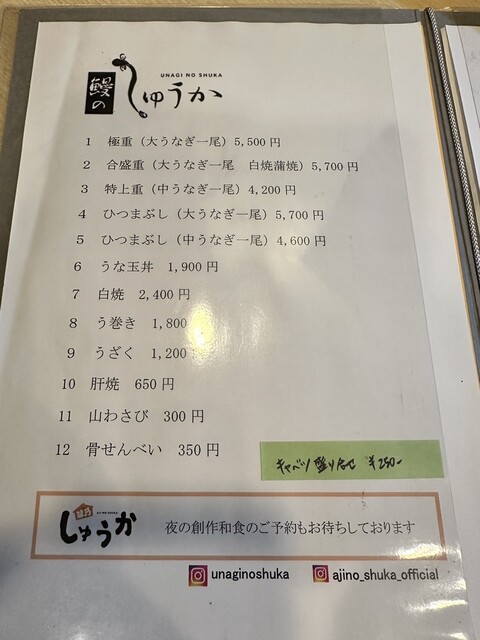 UNAGI NO SHUKA
鰻の しゅうか
1 極重（大うなぎ一尾）5,500円
2 合盛重（大うなぎ一尾　白焼蒲焼）5,700円
3 特上重（中うなぎ一尾）4,200円
4 ひつまぶし（大うなぎ一尾）5,700円
5 ひつまぶし（中うなぎ一尾）4,600円
6 うな玉丼 1,900円
7 白焼 2,400円
8 う巻き 1,800円
9 うざく 1,200円
10 肝焼 650円
11 山わさび 300円
12 骨せんべい 350円
キャベツ盛り合せ ¥250-
しゅうか
夜の創作和食のご予約もお待ちしております
unaginoshuka ajino_shuka_official